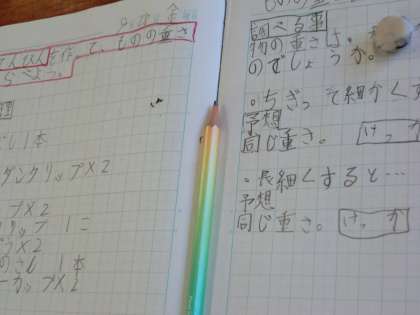 てんびんを作って、ものの重さ
らべよう。
理
し1本
ダンクリップ×2
プ×2
リップ 1こ
×2
のさし 1本
ーカップ×2
調べる事
物の重さは、
のでしょうか。
・ちぎって細かくす
予想
同じ重さ。 けっか
・長細くすると…
予想
同じ重さ。 けっか